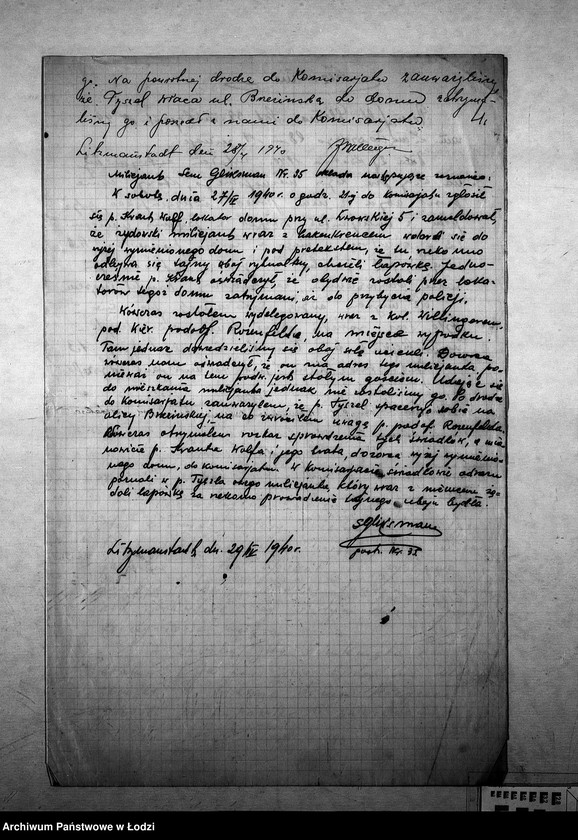 go. Na powrotnej drodze do Komisarjatu zauważyliśmy
że Tyszel wraca ul. Brzezińską do domu zatrzyma-
liśmy go i poszedł z nami do Komisarjatu.
4.
Litzmannstadt dnia 28/ 1940
Milicjant Sem Gliksman Nr. 35 składa następujące zeznanie.
W sobotę, dnia 27/IV 1940 r. o godz. 21ej do komisarjatu zgłosił
się p. Kraut Wolf, lokator domu przy ul. Lwowskiej 5 i zameldował,
że żydowski milicjant wraz z hakenkreuzem weszli się do
wyżej wymienionego domu i pod pretekstem, że tu rzekomo
odbywa się tajny ubój rytualny, chcieli łapówkę. Jedno-
cześnie p. Kraut oświadczył, że obydwaj zostali przez loka-
torów tegoż domu zatrzymani, aż do przybycia policji.
Wówczas zostałem wydelegowany, wraz z kol. Willingerem,
pod kier. podof. Rozenfelda, na miejsce wypadku.
Tam jednak dowiedzieliśmy się obaj uciekli. Dozorca
wówczas nam oświadczył, że on ma adres tego milicjanta, po-
nieważ on na tem podw. jest stałym gościem. Udając się
do mieszkania milicjanta jednak nie zastaliśmy go. Po drodze
do Komisarjatu zauważyłem, że p. Tyszel spaceruje sobie na
ulicy Brzezińskiej na co zwróciłem uwagę p. podof. Rozenfelda.
Wówczas otrzymałem rozkaz sprowadzenia tych świadków, a mia-
nowicie p. Krauta Wolfa i jego brata, dozorcę wyżej wymienio-
nego domu, do komisarjatu. W komisarjacie świadkowie odrazu
poznali w p. Tyszlu owego milicjanta, który wraz z niemcem żą-
dali łapówkę za rzekomo prowadzenie tajnego uboju bydła.
SGliksman
Litzmannstadt, dn. 29/IV 1940 r.
post. Nr. 35
Archiwum Państwowe w Łodzi